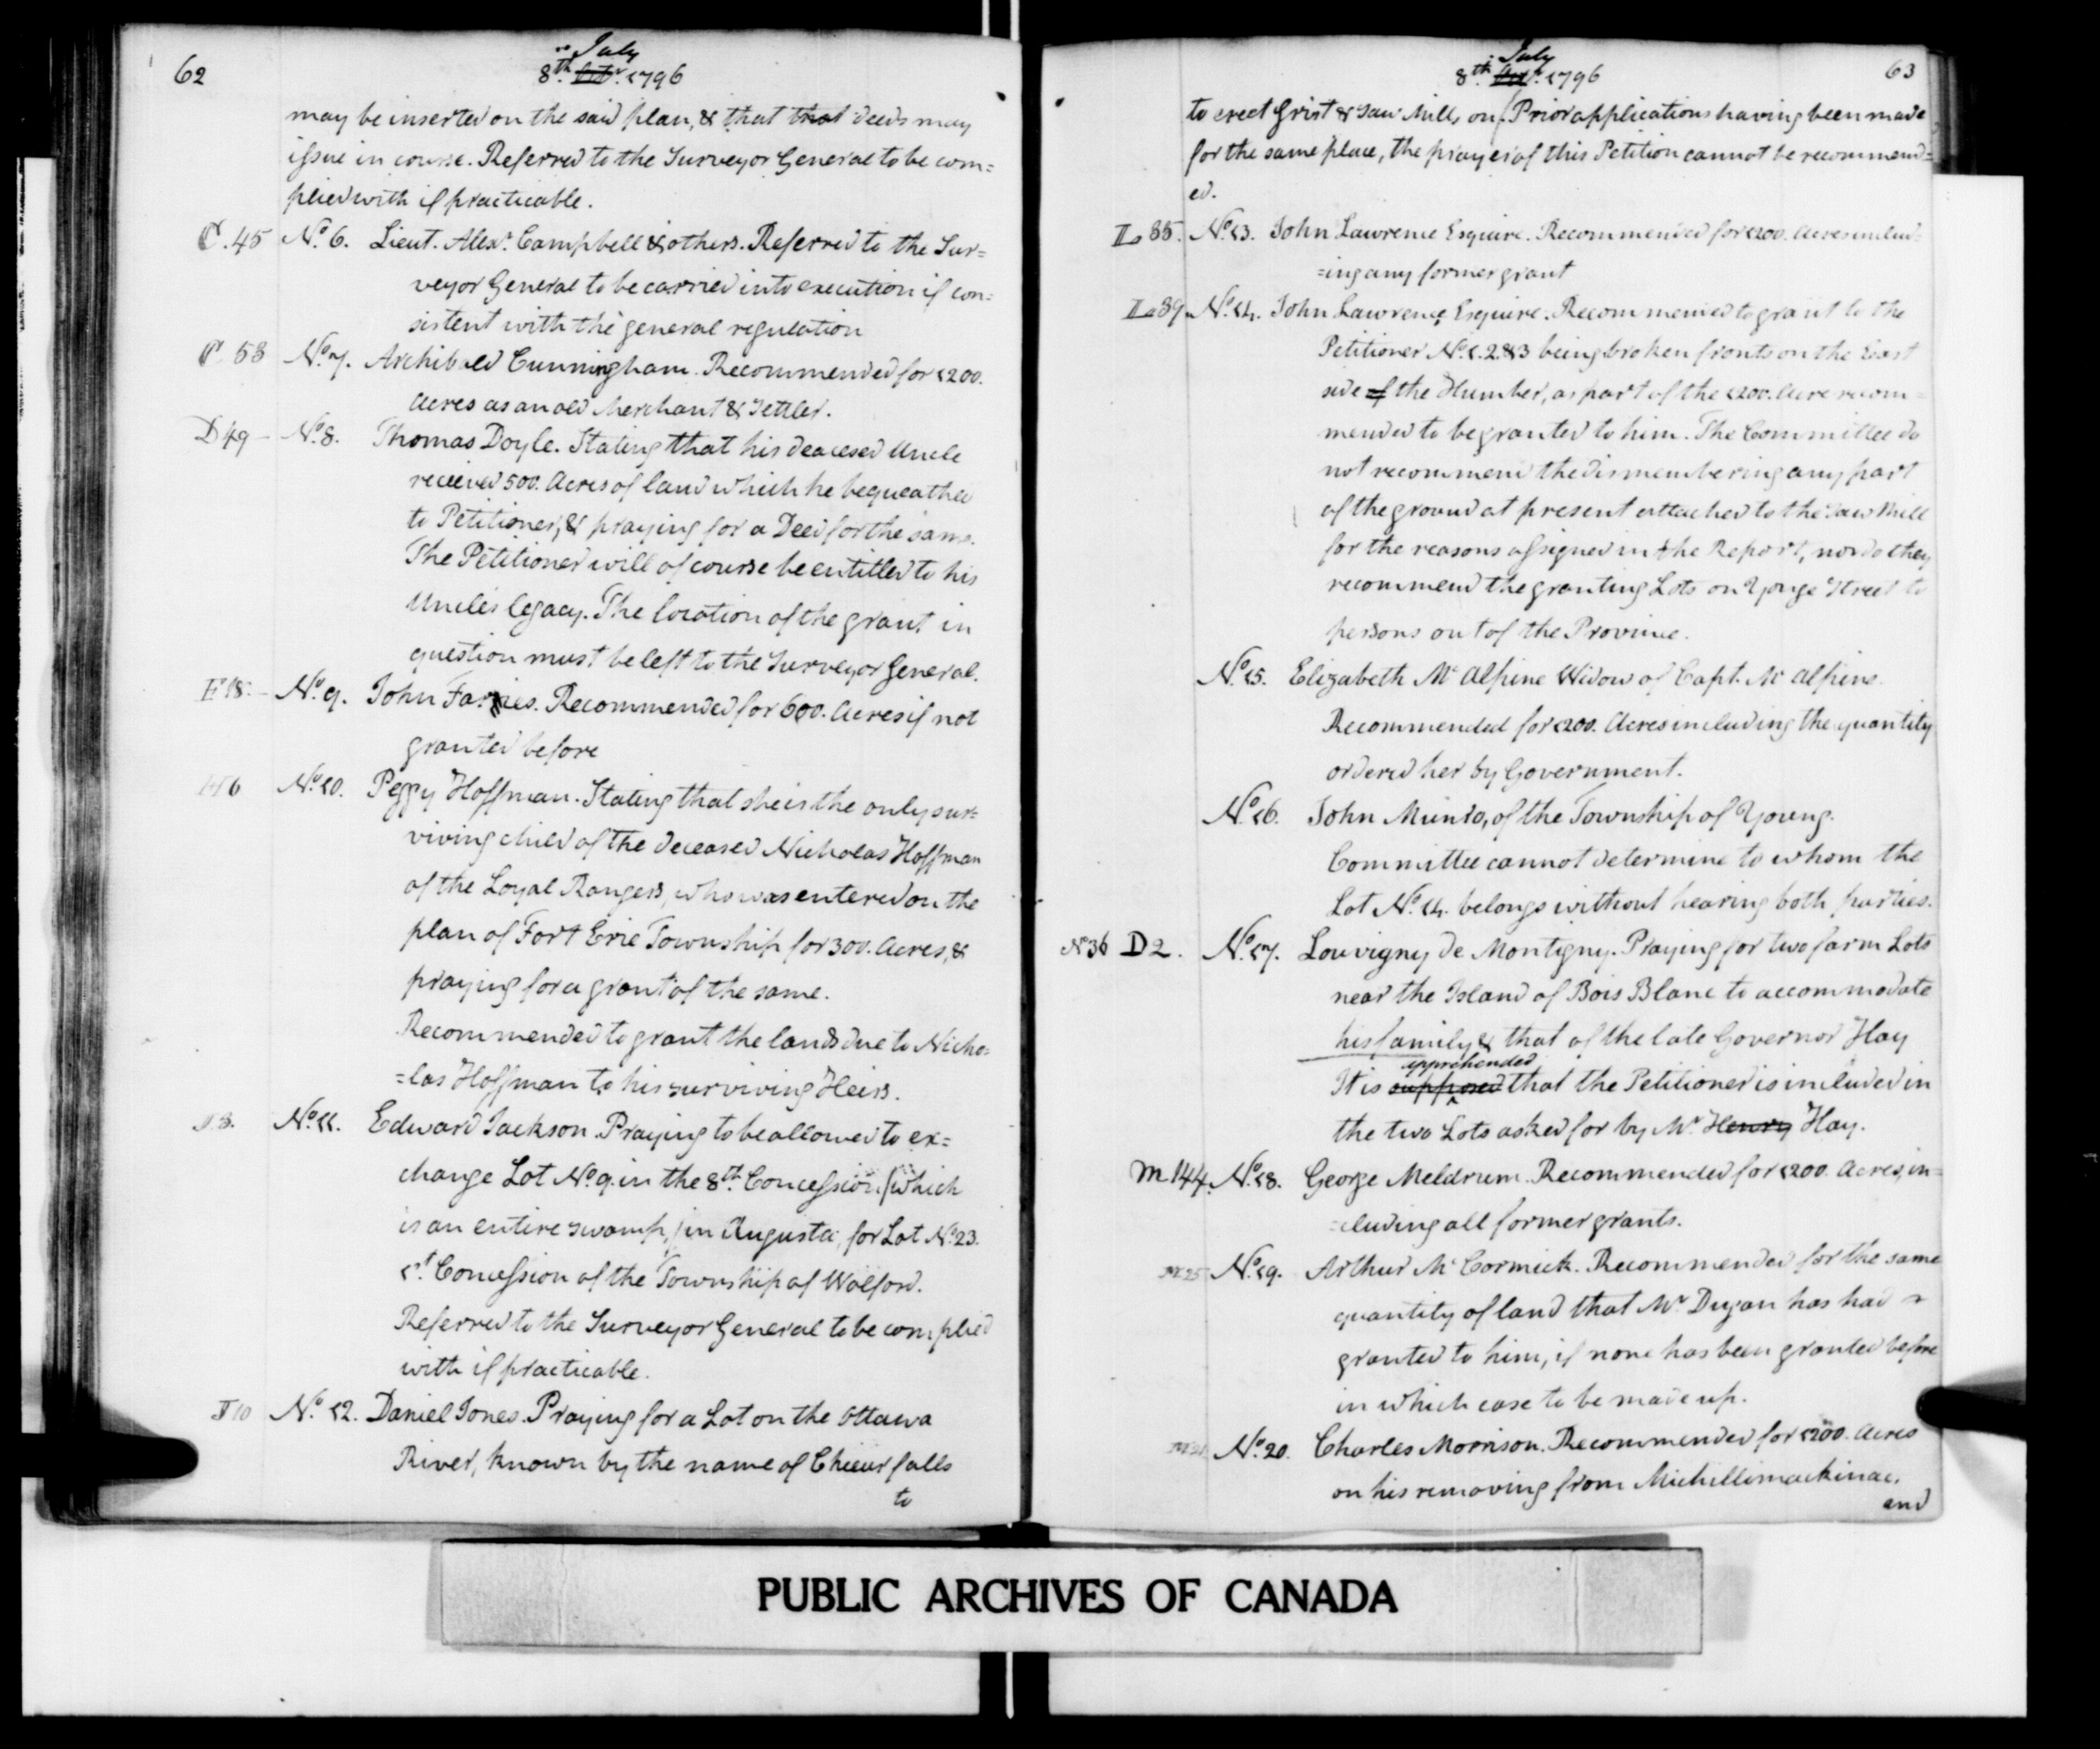 62
July
8th. Octr. 1796
may be inserted on the said plan, & that that deeds may
issue in course. Referred to the Surveyor General to be com=
plied with if practicable.
C. 45 No. 6. Lieut. Alexr. Campbell & others. Referred to the Sur=
veyor General to be carried into execution if con=
sistent with the general regulation
C 53 No. 7. Archibald Cunningham. Recommended for 1200.
Acres as an old Merchant & Settler.
D 49 - No. 8. Thomas Doyle. Stating that his deacesed Uncle
received 500. Acres of land which he bequeathed
to Petitioner, & praying for a Deed for the same.
The Petitioner will of course be entitled to his
Uncle's legacy. The location of the grant in
question must be left to the Surveyor General.
F 18. - No. 9. John Farries. Recommended for 600. Acres if not
granted before
H 6 No. 10. Peggy Hoffman. Stating that she is the only sur=
viving child of the deceased Nicholas Hoffman
of the Loyal Rangers, who was entered on the
plan of Fort Erie Township for 300. Acres, &
praying for a grant of the same.
Recommended to grant the lands due to Nicho=
=las Hoffman to his surviving Heirs.
J 3. No. 11. Edward Jackson. Praying to be allowed to ex=
change Lot No. 9. in the 8th. Concession (which
is an entire swamp,) in Augusta, for Lot No. 23.
1st. Concession of the Township of Wolford.
Referred to the Surveyor General to be complied
with if practicable.
J 10 No. 12. Daniel Jones. Praying for a Lot on the Ottawa
River, known by the name of falls
to
63
July
8th. Octr. 1796
to erect Grist & Saw Mills on. Prior applications having been made
for the same place, the prayer of this Petition cannot be recommend=
ed.
L 35. No. 13. John Lawrence Esquire. Recommended for 1200. Acres includ=
=ing any former grant
L 39. No. 14. John Lawrence Esquire. Recommended to grant to the
Petitioner No. 1. 2. & 3 being broken fronts on the East
side of the Humber, as part of the 1200. Acre recom=
mended to be granted to him. The Committee do
not recommend the dismembering any part
of the ground at present attached to the Saw Mill
for the reasons assigned in the Report, nor do they
recommend the granting Lots on Yonge Street to
persons out of the Province.
No. 15. Elizabeth Mc Alpine Widow of Capt. Mc Alpine.
Recommended for 1200. Acres including the quantity
ordered her by Government.
No. 16. John Munro, of the Township of Young.
Committee cannot determine to whom the
Lot No. 14. belongs without hearing both parties.
No 36 D 2. No. 17. Louvigny de Montigny. Praying for two farm Lots
near the Island of Bois Blanc to accommodate
his family & that of the late Governor Hay
apprehended
It is supposed that the Petitioner is included in
the two Lots asked for by Mr. Henry Hay.
M 144. No. 18. George Meldrum. Recommended for 1200. Acres, in=
=cluding all former grants.
M 25 No. 19. Arthur Mc Cormick. Recommended for the same
quantity of land that Mr. Dugan has had
granted to him, if none has been granted before
in which case to be made up.
No. 20. Charles Morrison. Recommended for 1200. Acres
on his removing from Michillimackinac.
and
PUBLIC ARCHIVES OF CANADA